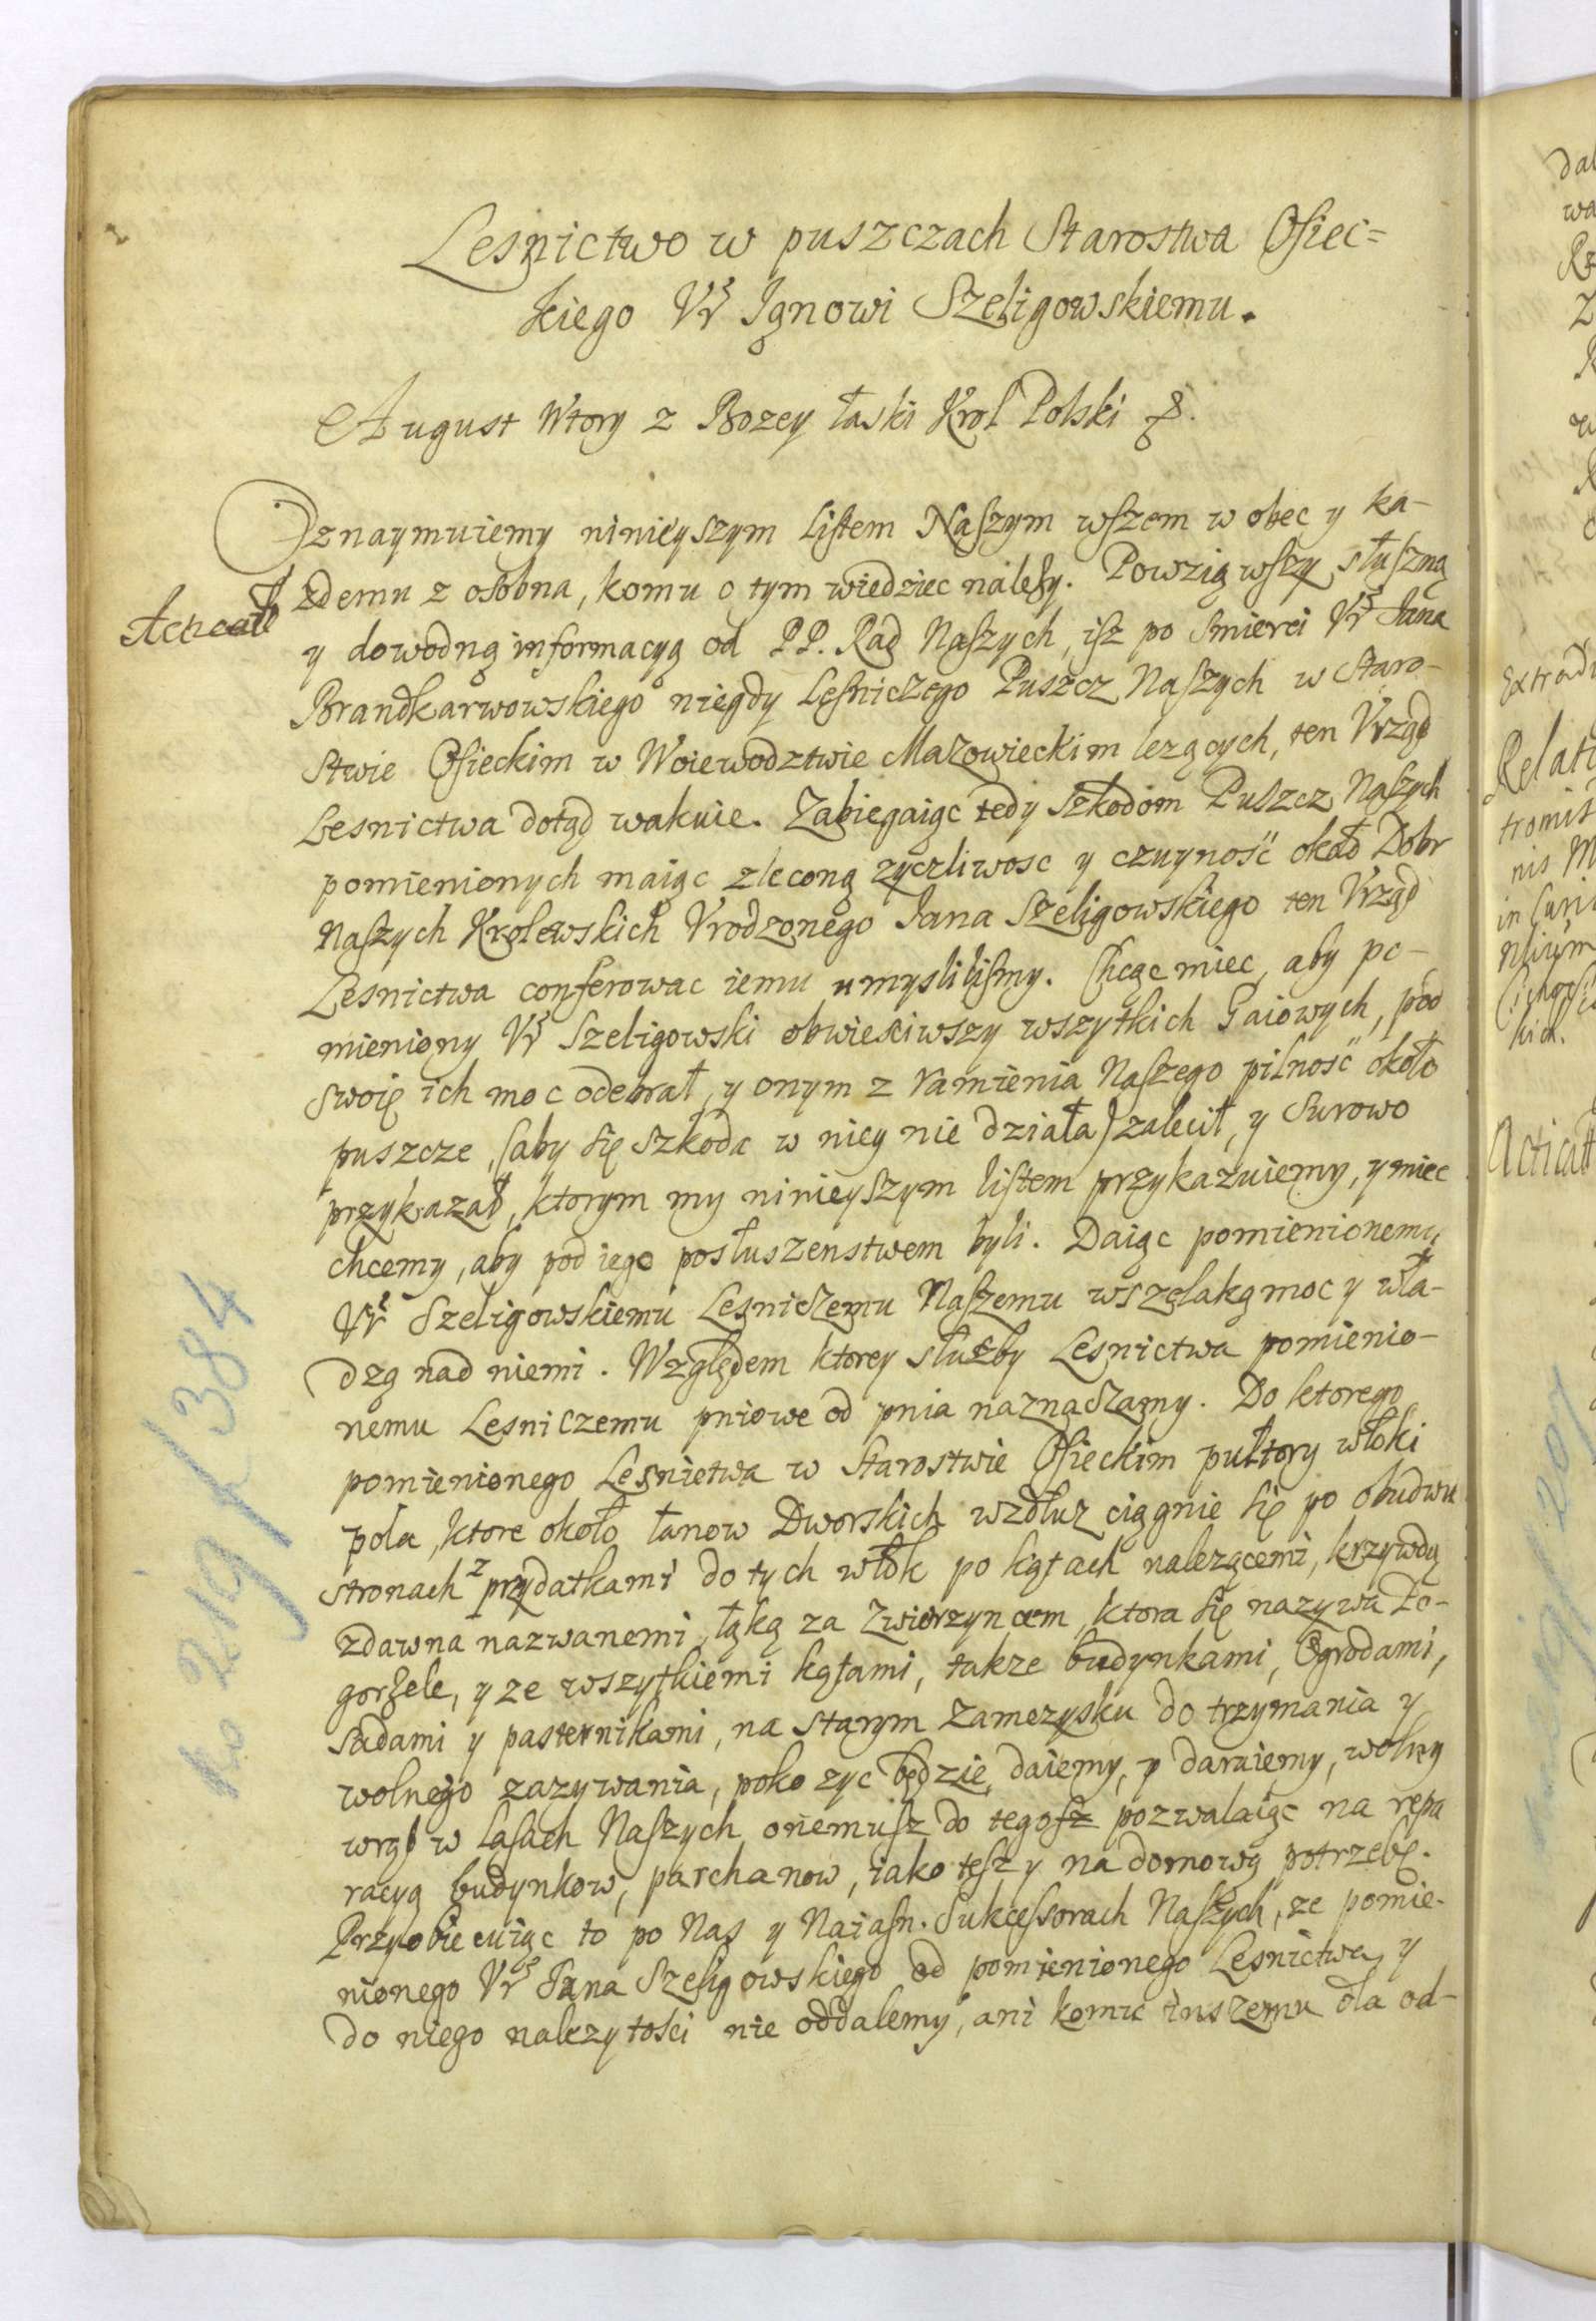 Lesnictwo w puszczach Starostwa Osiec=
kiego Ur Janowi Szeligowskiemu.
August Wtory z Bozey łaski Krol Polski &.
Oznaymuiemy ninieyszym listem Naszym wszem w obec y ka-
żdemu z osobna, komu o tym wiedziec należy. Powziąwszy słuszną
Acticatt
y dowodną informacyą od PP. Rad Naszych, isz po smierci Ur Jana
Brandkarwowskiego niegdy Lesniczego Puszcz Naszych w Staro-
stwie Osieckim w Woiewodztwie Mazowieckim lezących, ten Vrząd
Lesnictwa dotąd wakuie. Zabiegaiąc tedy szkodom Puszcz Naszych
pomienionych maiąc zleconą zyczliwosc y czuyność około Dobr
Naszych Krolewskich Vrodzonego Jana Szeligowskiego ten Vrząd
Lesnictwa conferowac iemu umyslilismy. Chcąc miec, aby po-
mieniony Ur Szeligowski obwiesciwszy wszytkich Gaiowych, pod
swoię ich moc odebrał, y onym z ramienia Naszego pilność około
puszcze, (aby się szkoda w niey nie działa) zalecił, y surowo
przykazał, ktorym my ninieyszym listem przykazuiemy, y miec
chcemy, aby pod iego posłuszenstwem byli. Daiąc pomienionemu
Ur Szeligowskiemu Lesniczemu Naszemu wszelaką moc y wła-
dzą nad niemi. Względem ktorey służby Lesnictwa pomienio-
nemu Lesniczemu pniowe od pnia naznaczamy. Do ktorego
pomienionego Lesnictwa w Starostwie Osieckim pułtory włoki
pola, ktore około łanow Dworskich wzdłuz ciągnie się po obudwu
stronach z przydatkami do tych włok po kątach nalezącemi, krzywdą
zdawna nazwanemi, łąką za Zwierzyncem, ktora się nazywa Po-
gorzele, y ze wszytkiemi kątami, takze budynkami, Ogrodami,
Sadami y pasternikami, na starym Zamezysku do trzymania y
wolnego zazywania, poko zyc będzie, daiemy, y daruiemy, wolny
wrąb w lasach Naszych onemusz do tegosz pozwalaiąc na repa
racyą budynkow, parchanow, iako tesz y na domową potrzebę.
Przyobiecuiąc to po Nas y Naiasn. Sukcessorach Naszych, ze pomie-
nionego Ur Jana Szeligowskiego od pomienionego Lesnictwa y
do niego nalezytości nie oddalemy, ani komu inszemu dla od-